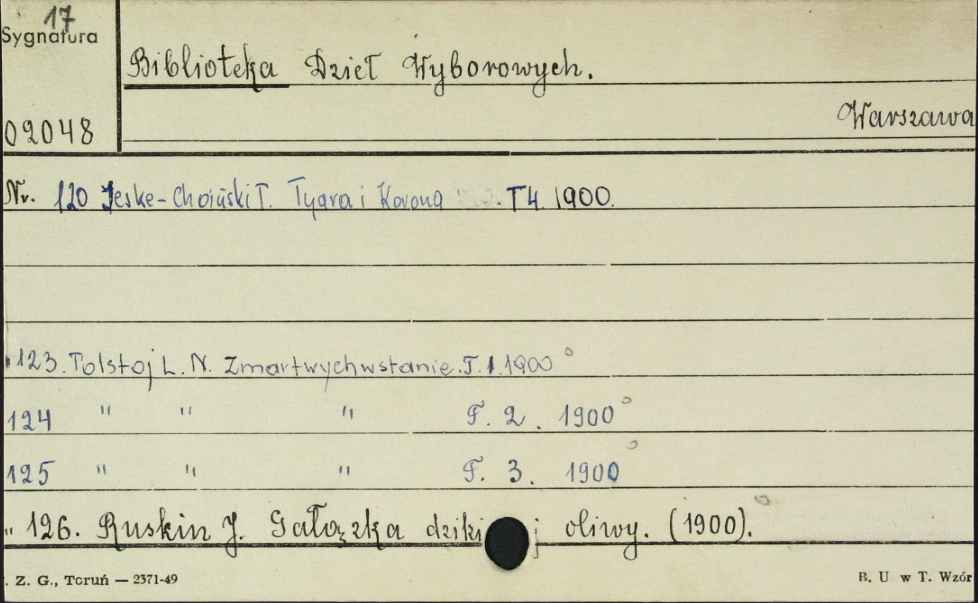 17
Sygnatura
Biblioteka Dzieł Wyborowych.
Warszawa
02048
Nr. 120 Jeske-Choiński T. Tyara i Korona T4. 1900.
" 123. Tolstoj L. N. Zmartwychwstanie. T. 1. 1900
124 " " " T. 2. 1900
125 " " " T. 3. 1900
" 126. Ruskin J. Gałązka dzikiej oliwy. (1900).
. Z. G., Toruń — 2371-49
B. U w T. Wzór